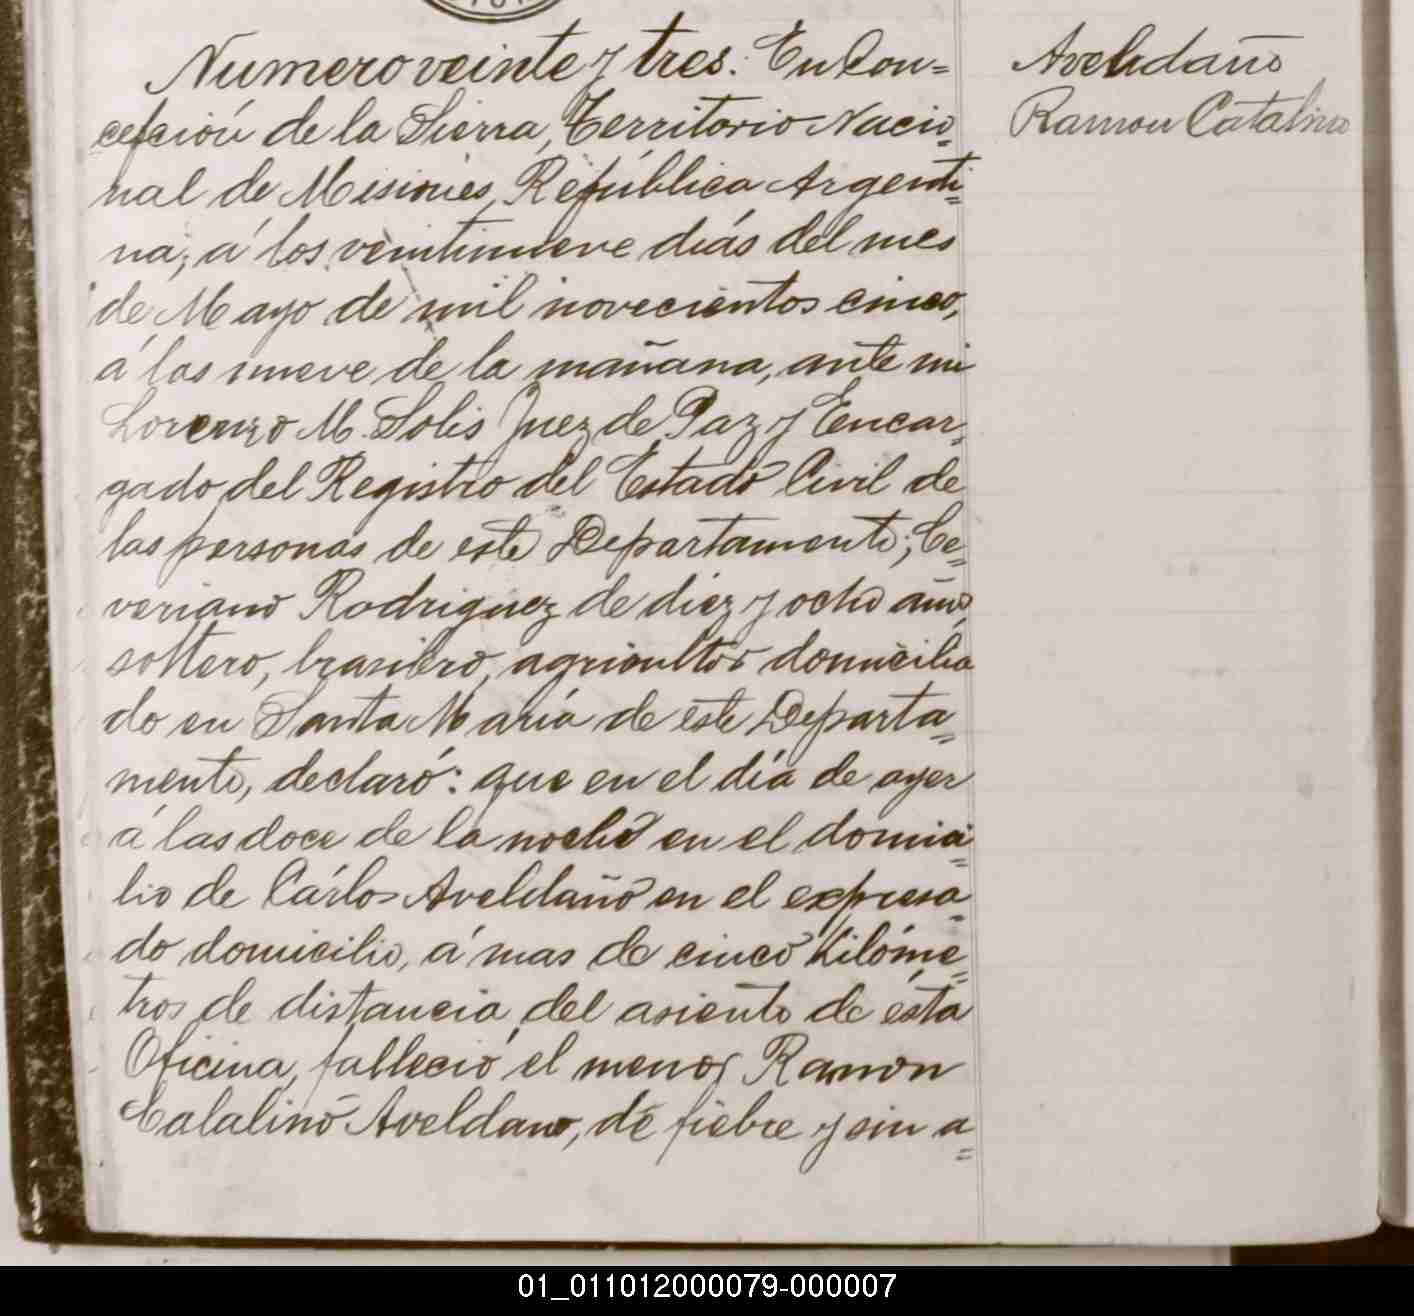 Numero veinte y tres. En Con=
cepción de la Sierra, Territorio Nacio=
nal de Misiones, República Argenti=
na, á los veintinueve diás del mes
de Mayo de mil novecientos cinco,
á las nueve de la mañana, ante mi
Lorenzo M. Solis Juez de Paz y Encar=
gado del Registro del Estado Civil de
las personas de este Departamento; Ce=
veriano Rodriguez de diez y ocho años
soltero, brasilero, agricultor domicilia
do en Santa María de este Departa=
mento, declaró: que en el día de ayer
á las doce de la noche en el domici=
lio de Cárlos Aveldaño en el expresa=
do domicilio, á mas de cinco kilóme=
tros de distancia del asiento de ésta
Oficina, falleció el menor Ramon
Catalino Aveldano, de fiebre y sin a=
Aveldaño
Ramon Catalino
01_011012000079-000007